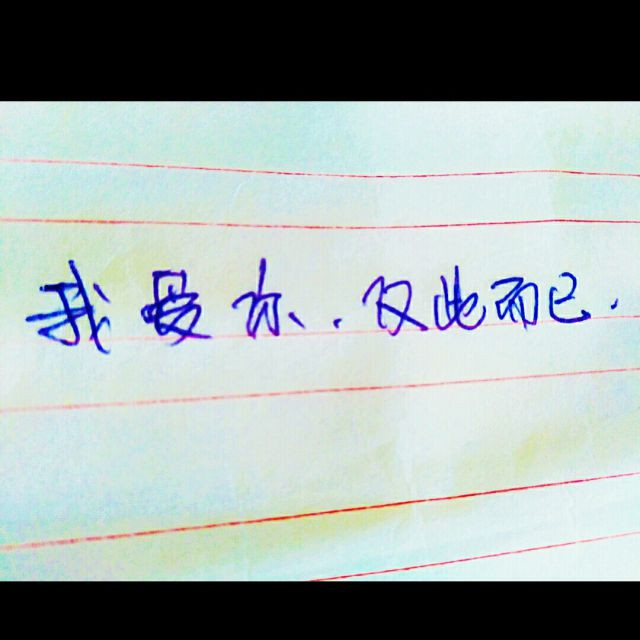 我爱你.仅此而已.